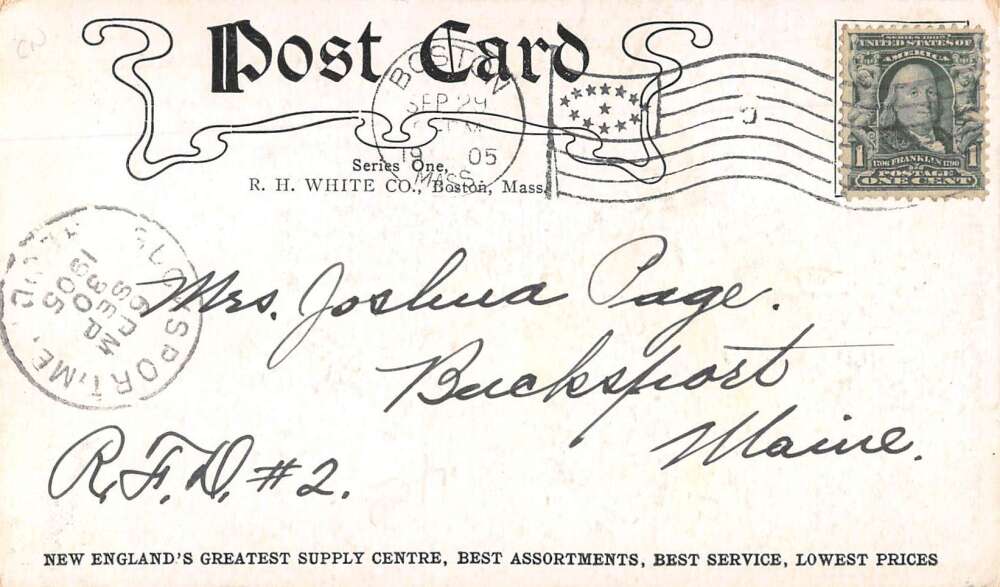 Post Card
BOSTON
SEP 29
19 05
MASS.
Series One.
R. H. WHITE CO., Boston, Mass.
SERIES 1902
UNITED STATES OF
AMERICA
1 1
1706 FRANKLIN 1790
POSTAGE
ONE CENT
BUCKSPORT, ME.
SEP
30
1905
Mrs. Joshua Page.
Bucksport
Maine.
R.F.D. #2.
NEW ENGLAND'S GREATEST SUPPLY CENTRE, BEST ASSORTMENTS, BEST SERVICE, LOWEST PRICES